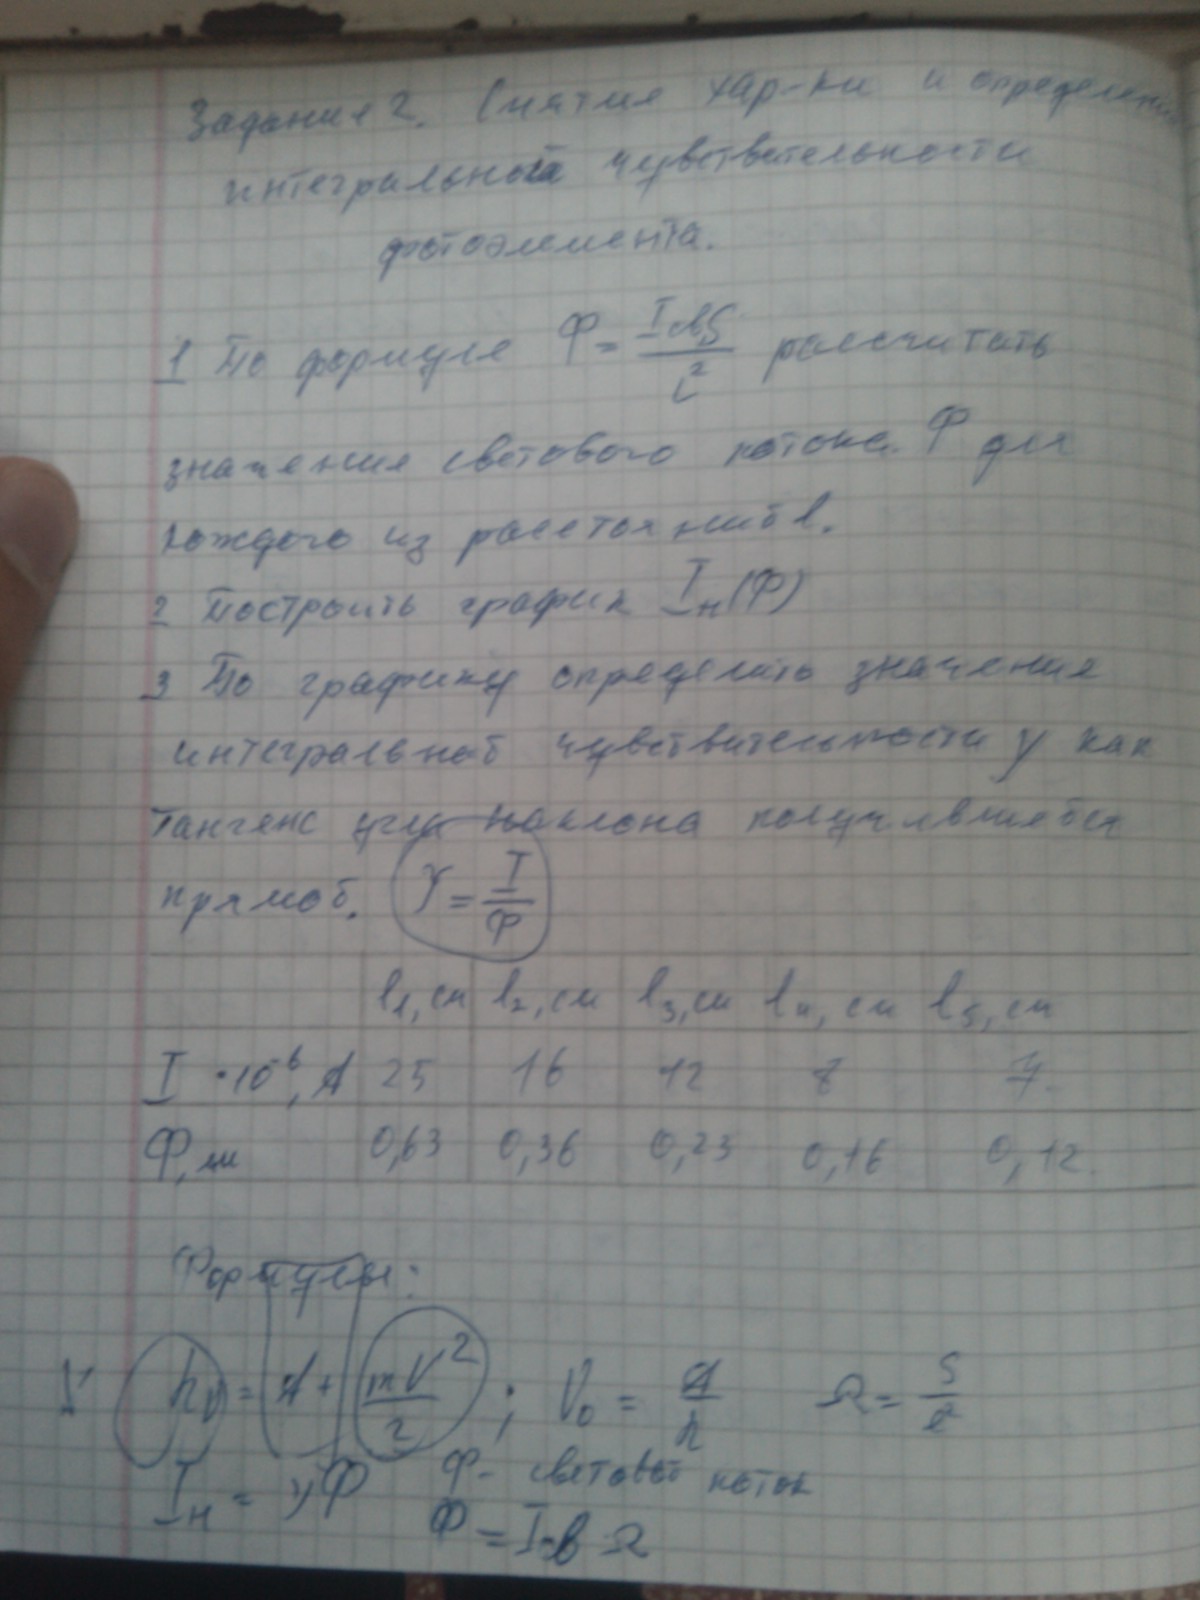 Задание 2. Снятие хар-ки и определение
интегральной чувствительности
фотоэлемента.
1 По формуле Ф = IсвS / l² рассчитать
значения светового потока Ф для
каждого из расстояний l.
2 Построить график Iн(Ф)
3 По графику определить значения
интегральной чувствительности γ как
тангенс угла наклона получившейся
прямой. γ = I / Ф
l₁, см l₂, см l₃, см l₄, см l₅, см
I ·10⁻⁶, А 25 16 12 8 7
Ф, лм 0,63 0,36 0,23 0,16 0,12
Формулы:
hν = A + mV² / 2 ; ν₀ = A / h Ω = S / l²
Iн = γФ Ф - световой поток
Ф = Iсв Ω